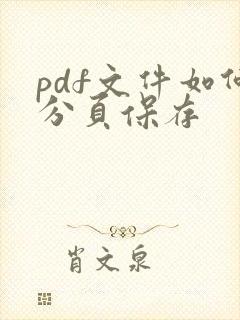 pdf文件如何
分页保存
肖文泉